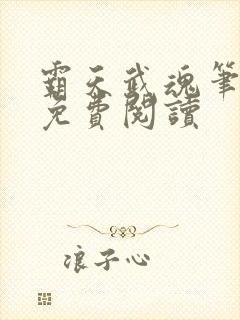 霸天武魂筆
免費閱讀
浪子心